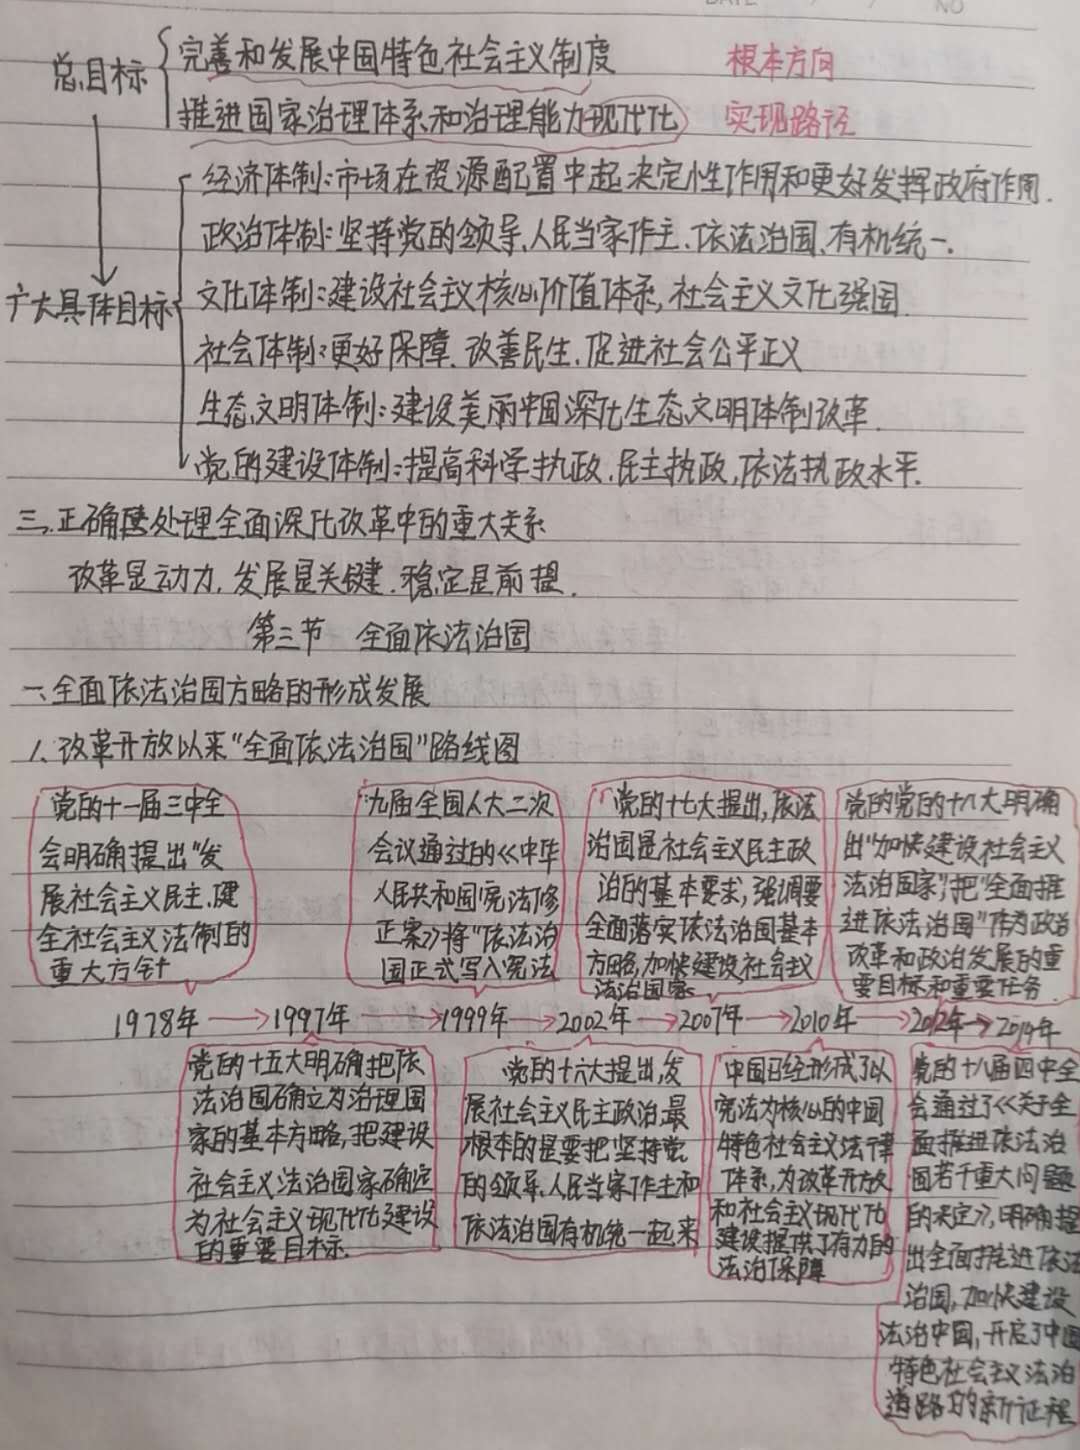 DATE / / NO
总目标
完善和发展中国特色社会主义制度 根本方向
推进国家治理体系和治理能力现代化 实现路径
经济体制:市场在资源配置中起决定性作用和更好发挥政府作用.
政治体制:坚持党的领导、人民当家作主、依法治国、有机统一.
广大具体目标
文化体制:建设社会主义核心价值体系,社会主义文化强国.
社会体制:更好保障、改善民生,促进社会公平正义
生态文明体制:建设美丽中国深化生态文明体制改革.
党的建设体制:提高科学执政、民主执政,依法执政水平.
三.正确处理全面深化改革中的重大关系
改革是动力,发展是关键.稳定是前提.
第三节 全面依法治国
一、全面依法治国方略的形成发展
1.改革开放以来“全面依法治国”路线图
党的十一届三中全
会明确提出“发
展社会主义民主、健
全社会主义法制的
重大方针
九届全国人大二次
会议通过的《中华
人民共和国宪法修
正案》将“依法治
国正式写入宪法
党的十七大提出,依法
治国是社会主义民主政
治的基本要求,强调要
全面落实依法治国基本
方略,加快建设社会主义
法治国家
党的党的十八大明确
出“加快建设社会主义
法治国家”,把“全面推
进依法治国”作为政治
改革和政治发展的重
要目标和重要任务
1978年→1997年→1999年→2002年→2007年→2010年→2012年→2014年
党的十五大明确把依
法治国确立为治理国
家的基本方略,把建设
社会主义法治国家确定
为社会主义现代化建设
的重要目标.
党的十六大提出,发
展社会主义民主政治最
根本的是要把坚持党
的领导、人民当家作主和
依法治国有机统一起来
中国已经形成了以
宪法为核心的中国
特色社会主义法律
体系,为改革开放
和社会主义现代化
建设提供了有力的
法治保障
党的十八届四中全
会通过了《关于全
面推进依法治
国若干重大问题
的决定》,明确提
出全面推进依法
治国,加快建设
法治中国,开启了中国
特色社会主义法治
道路的新征程